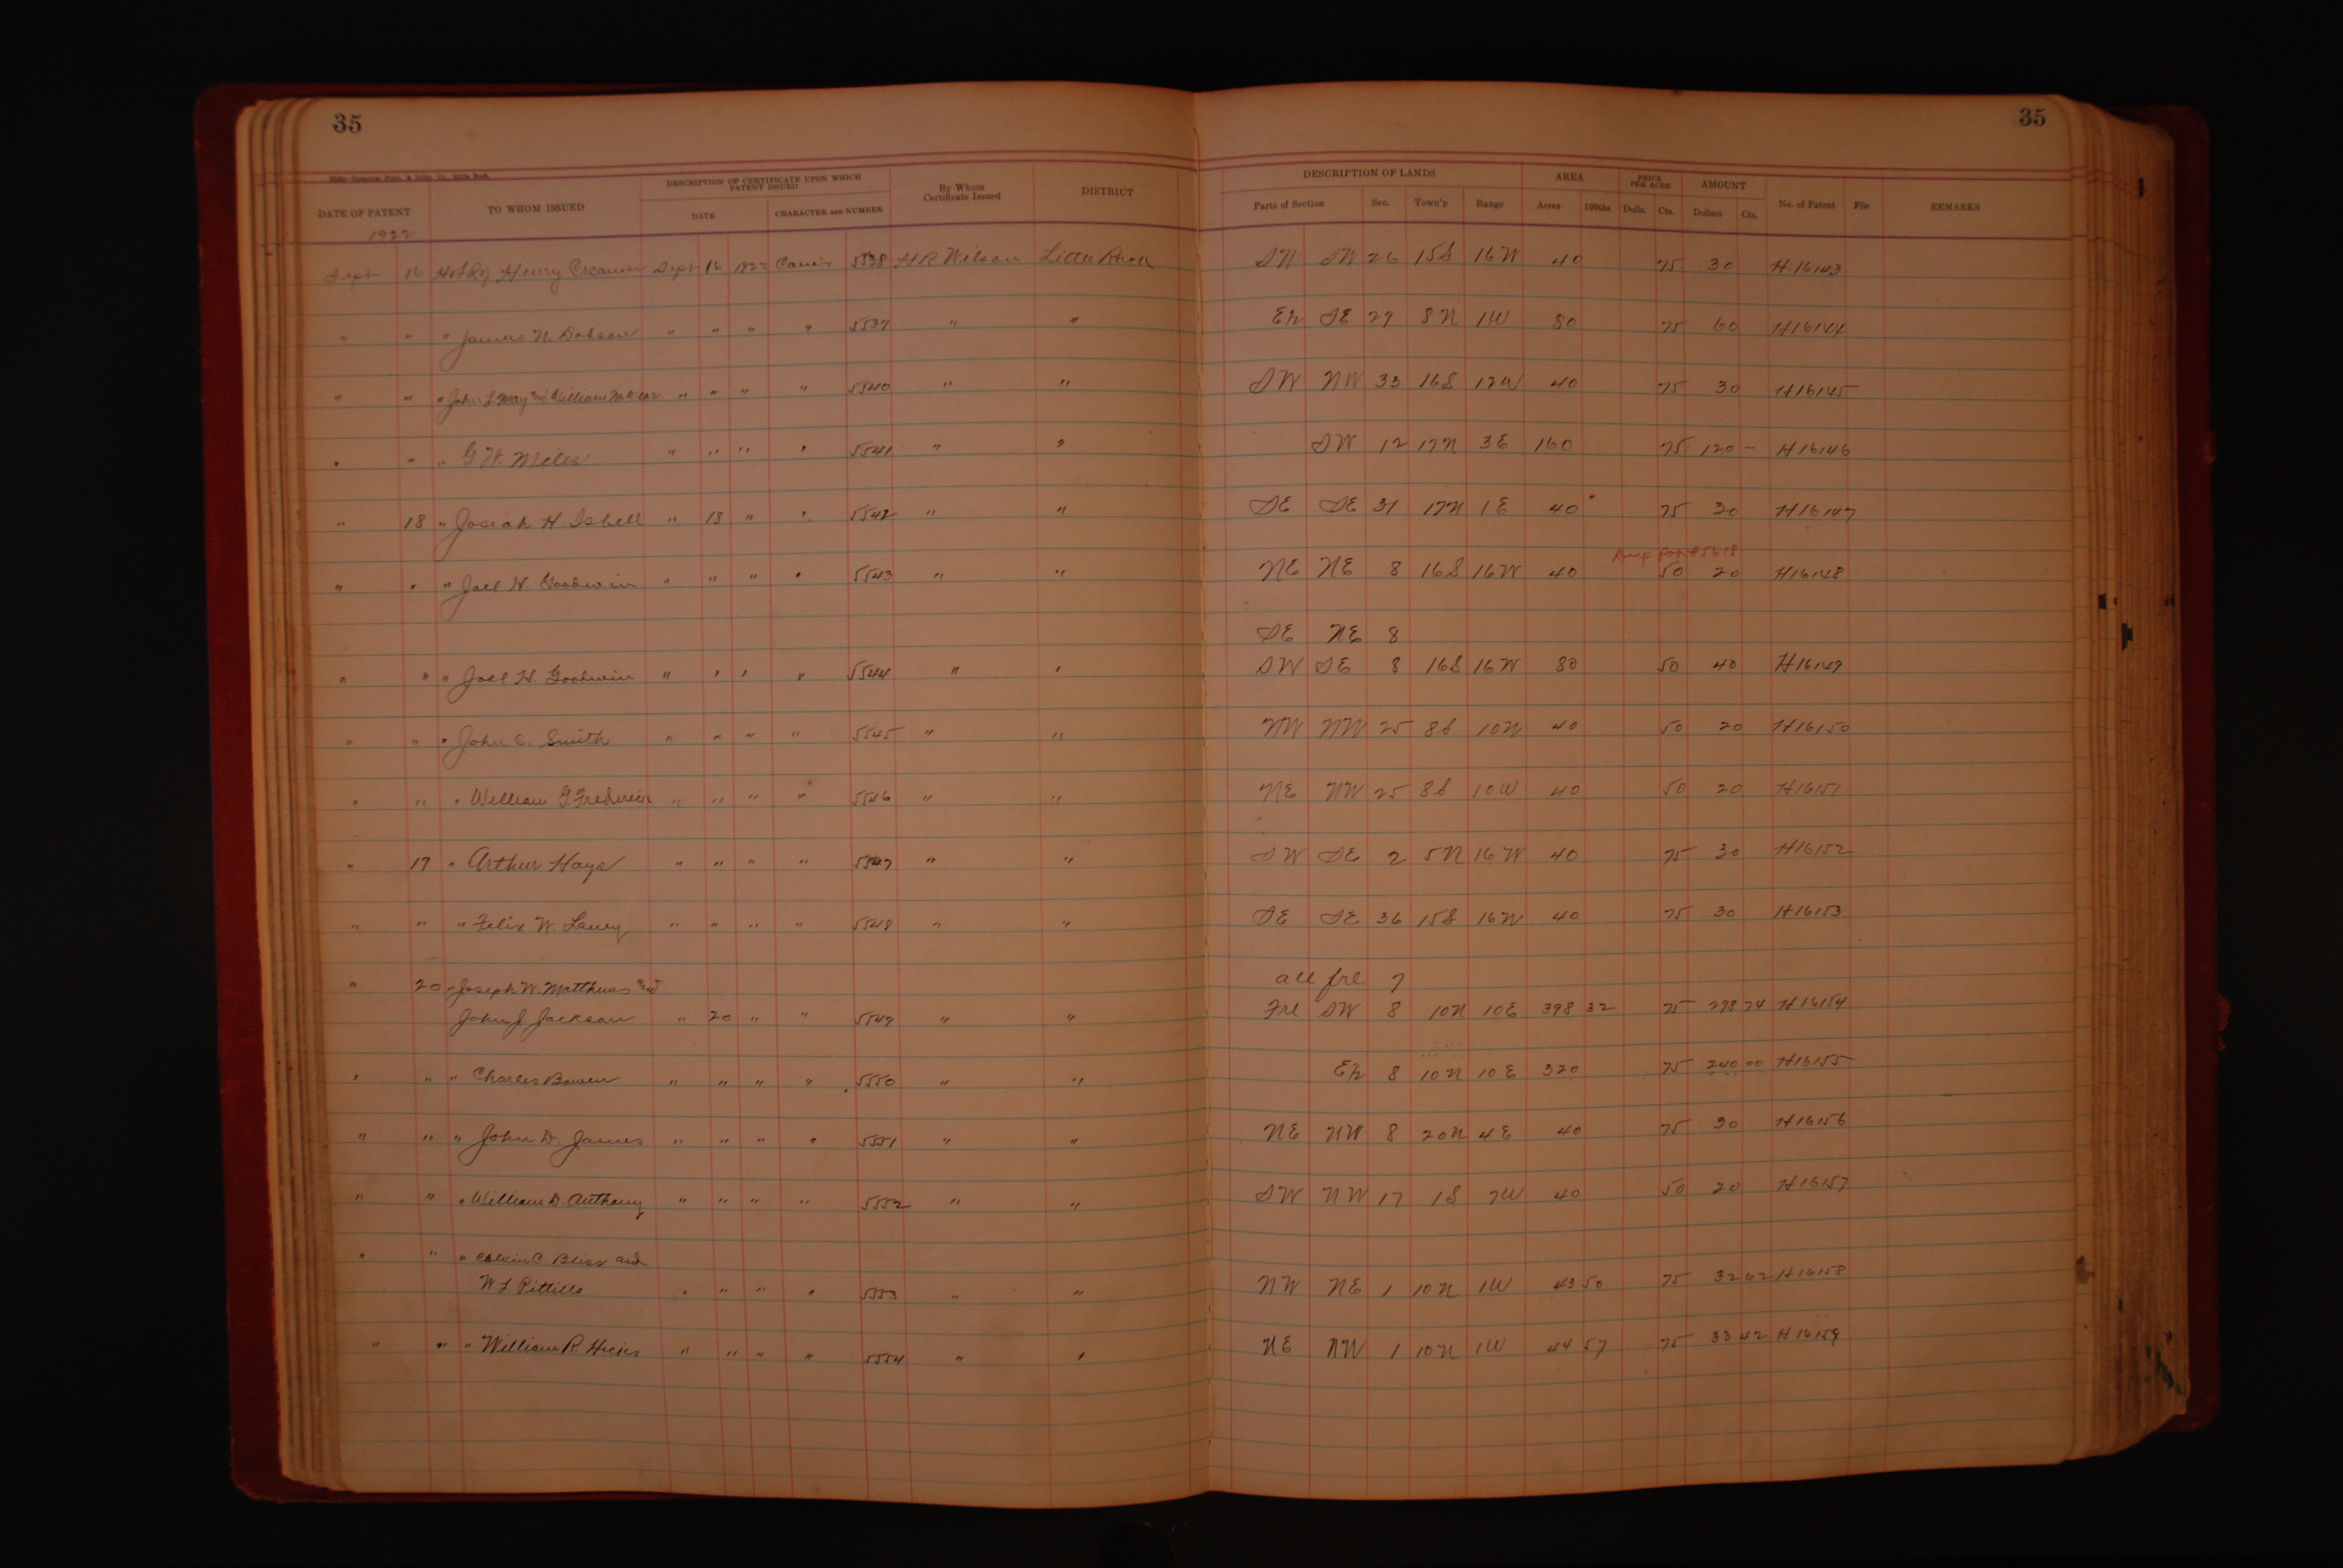 35
35
DATE OF PATENT TO WHOM ISSUED DESCRIPTION OF CERTIFICATE UPON WHICH PATENT ISSUED By Whom Certificate Issued DISTRICT DESCRIPTION OF LANDS AREA PRICE PER ACRE AMOUNT No. of Patent File REMARKS
DATE CHARACTER AND NUMBER Parts of Section Sec. Town'p Range Acres 100ths Dolls. Cts. Dollars Cts.
1922
Sept 16 Henry Creamer Sept 16 1922 5538 H R Wilson Little Rock SW SW 26 15S 16W 40 75 30 H.16143
" " " James N. Dobson " " " " 5539 " " E½ SE 29 8N 1W 80 75 60 H16144
" " " John L. May and William " " " " 5540 " " SW NW 33 16S 12W 40 75 30 H16145
" " " G W. Miles " " " " 5541 " " SW 12 17N 3E 160 75 120 - H16146
" 18 " Josiah H Isbell " 18 " " 5542 " " SE SE 31 17N 1E 40 75 30 H16147
#5618
" " " Joel H Goodwin " " " " 5543 " " NE NE 8 16S 16W 40 50 20 H16148
SE NE 8
" " " Joel H. Goodwin " " " " 5544 " " SW SE 8 16S 16W 80 50 40 H16149
" " " John C. Smith " " " " 5545 " " NW NW 25 8S 10W 40 50 20 H16150
" " " William G. " " " " 5546 " " NE NW 25 8S 10W 40 50 20 H16151
" 19 " Arthur Hays " " " " 5547 " " SW SE 2 5N 16W 40 75 30 H16152
" " " Felix W. Laney " " " " 5548 " " SE SE 36 15S 16W 40 75 30 H16153
" 20 " Joseph W. Matthews and all frl 7
John J. Jackson " 20 " " 5549 " " Frl SW 8 10N 10E 398 32 75 298 74 H16154
" " " Charles Bowen " " " " 5550 " " E½ 8 10N 10E 320 75 240 00 H16155
" " " John D. James " " " " 5551 " " NE NW 8 20N 4E 40 75 30 H16156
" " " William D. Anthony " " " " 5552 " " SW NW 17 1S 7W 40 50 20 H16157
" " " Calvin C Bliss and
W L Pittills " " " " 5553 " " NW NE 1 10N 1W 43 50 75 32 62 H16158
" " " William R. Hicks " " " " 5554 " " NE NW 1 10N 1W 44 57 75 33 42 H16159